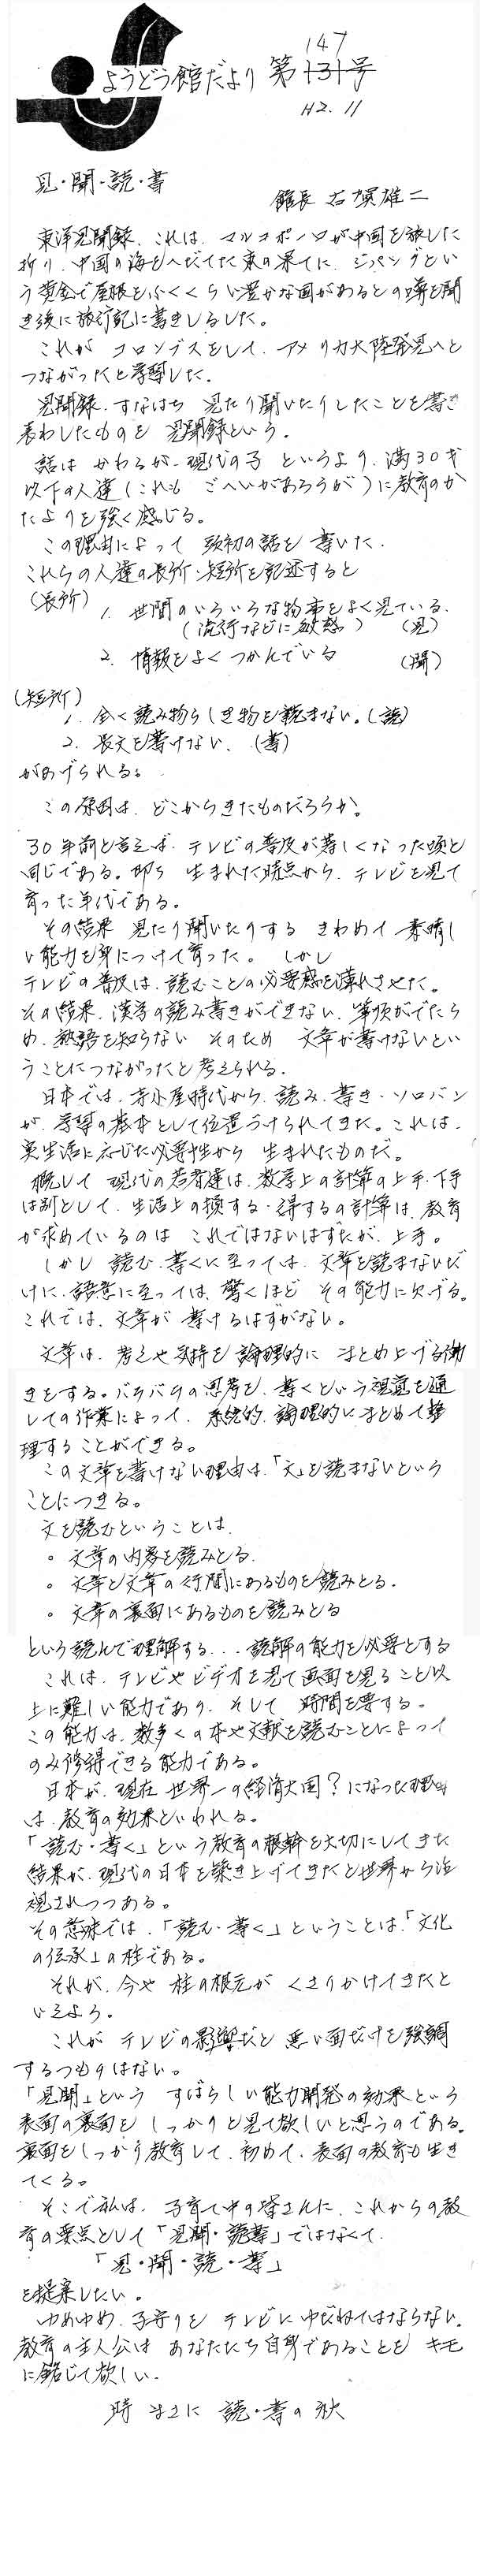 147
ようどう館だより 第131号
H2.11
見・聞・読・書
館長 古賀雄二
東洋見聞録、これは、マルコポーロが中国を旅した
折り、中国の海をへだてた東の果てに、ジパングとい
う黄金で屋根をふくくらい豊かな国があるとの噂を聞
き後に旅行記に書きしるした。
これが コロンブスをして、アメリカ大陸発見へと
つながったと学習した。
見聞録、すなはち 見たり聞いたりしたことを書き
表わしたものを 見聞録という。
話は かわるが、現代の子 というより、満30才
以下の人達(これも ごへいがあろうが)に教育のか
たよりを強く感じる。
この理由によって 頭初の話を 書いた。
これらの人達の長所・短所を記述すると
(長所) 1. 世間のいろいろな物事をよく見ている。
(流行などに敏感) (見)
2. 情報をよく つかんでいる (聞)
(短所)
1. 全く読み物らしき物を読まない。(読)
2. 長文を書けない、 (書)
があげられる。
この原因は、どこからきたものだろうか。
30年前と言えば、テレビの普及が著しくなった頃と
同じである。即ち 生まれた時点から、テレビを見て
育った年代である。
その結果 見たり聞いたりする きわめて 素晴し
い能力を身につけて育った。 しかし
テレビの普及は、読むことの必要感を薄れさせた。
その結果、漢字の読み書きができない、筆順がでたら
め、熟語を知らない そのため 文章が書けないとい
うことにつながったと考えられる。
日本では、寺小屋時代から、読み、書き、ソロバン
が、学習の基本として位置づけられてきた。これは、
実生活に応じた必要性から 生まれたものだ。
概して 現代の若者達は、数学上の計算の上手・下手
は別として、生活上の損する・得するの計算は、教育
が求めているのは これではないはずだが、上手。
しかし 読む、書くに至っては、文章を読まないだ
けに、語意に至っては、驚くほど その能力に欠ける。
これでは、文章が 書けるはずがない。
文章は、考えや気持を論理的に まとめ上げる働
きをする。バラバラの思考を、書くという視道を通
しての作業によって、系統的、論理的にまとめて整
理することができる。
この文章を書けない理由は、「文」を読まないという
ことにつきる。
文を読むということは、
。文章の内容を読みとる。
。文章と文章の行間にあるものを読みとる。
。文章の裏面にあるものを読みとる
という読んで理解する... 読解の能力を必要とする
これは、テレビやビデオを見て画面を見ること以
上に難しい能力であり、そして 時間を要する。
この能力は、数多くの本や文献を読むことによって
のみ修得できる能力である。
日本が、現在 世界一の経済大国?になった理由
は、教育の効果といわれる。
「読む・書く」という教育の根幹を大切にしてきた
結果が、現代の日本を築き上げてきたと世界から注
視されつつある。
その意味では、「読む・書く」ということは、「文化
の伝承」の柱である。
それが、今や 柱の根元が くさりかけてきたと
いえよう。
これが テレビの影響だと 悪い面だけを強調
するつもりはない。
「見聞」という すばらしい能力開発の効果という
表面の裏面を しっかりと見て欲しいと思うのである。
裏面をしっかり教育して、初めて、表面の教育も生き
てくる。
そこで私は、子育て中の皆さんに、これからの教
育の要点として「見聞・読書」ではなくて、
「見・聞・読・書」
を提案したい。
ゆめゆめ、子守りを テレビに ゆだねてはならない。
教育の主人公は あなたたち自身であることを キモ
に銘じて欲しい。
時 まさに 読・書の秋